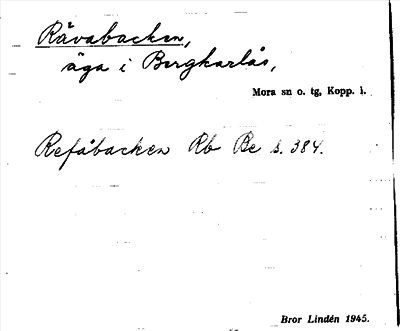 Råvabacken,
äga i Bergkarlås,
Mora sn o. tg, Kopp. l.
Refåbacken Rb Be s. 384.
Bror Lindén 1945.